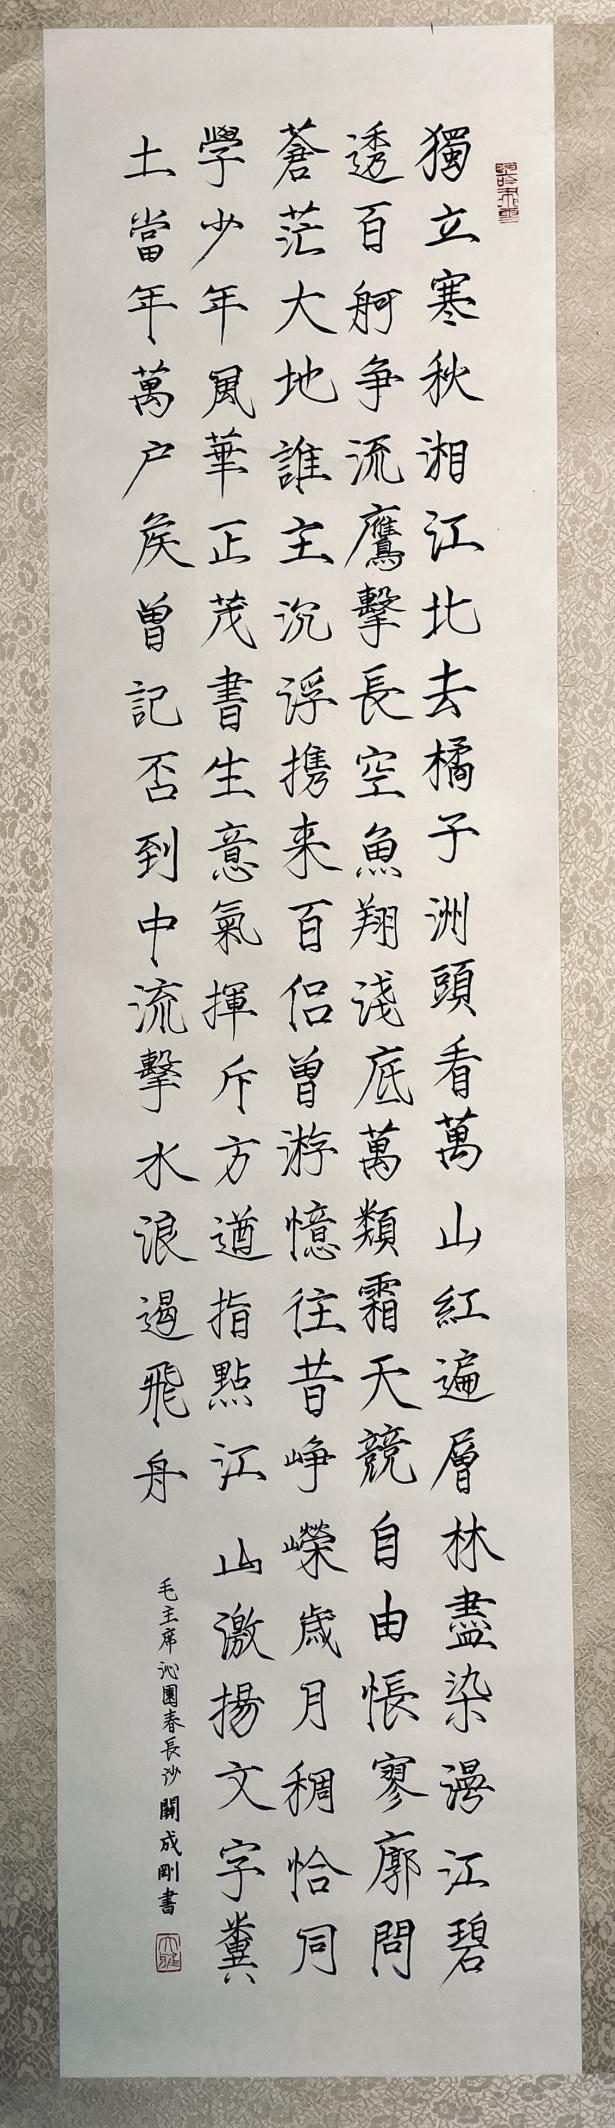 獨立寒秋湘江北去橘子洲頭看萬山紅遍層林盡染漫江碧
透百舸争流鷹擊長空魚翔淺底萬類霜天競自由悵寥廓問
蒼茫大地誰主沉浮携来百侣曾游憶往昔崢嶸歲月稠恰同
學少年風華正茂書生意氣揮斥方遒指點江山激揚文字糞
土當年萬户矦曾記否到中流擊水浪遏飛舟
毛主席沁園春長沙 關成剛書